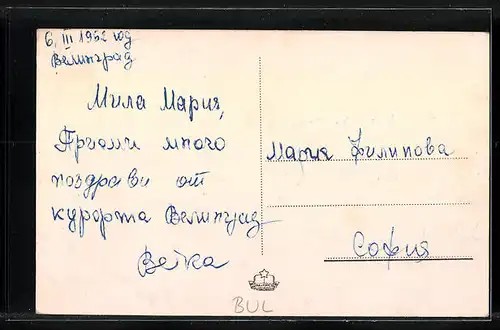 6. III 1962 год
Велинград
Мила Мария,
Приеми много
поздрави от
курорта Велинград
Ветка
Мария Филипова
София
BUL